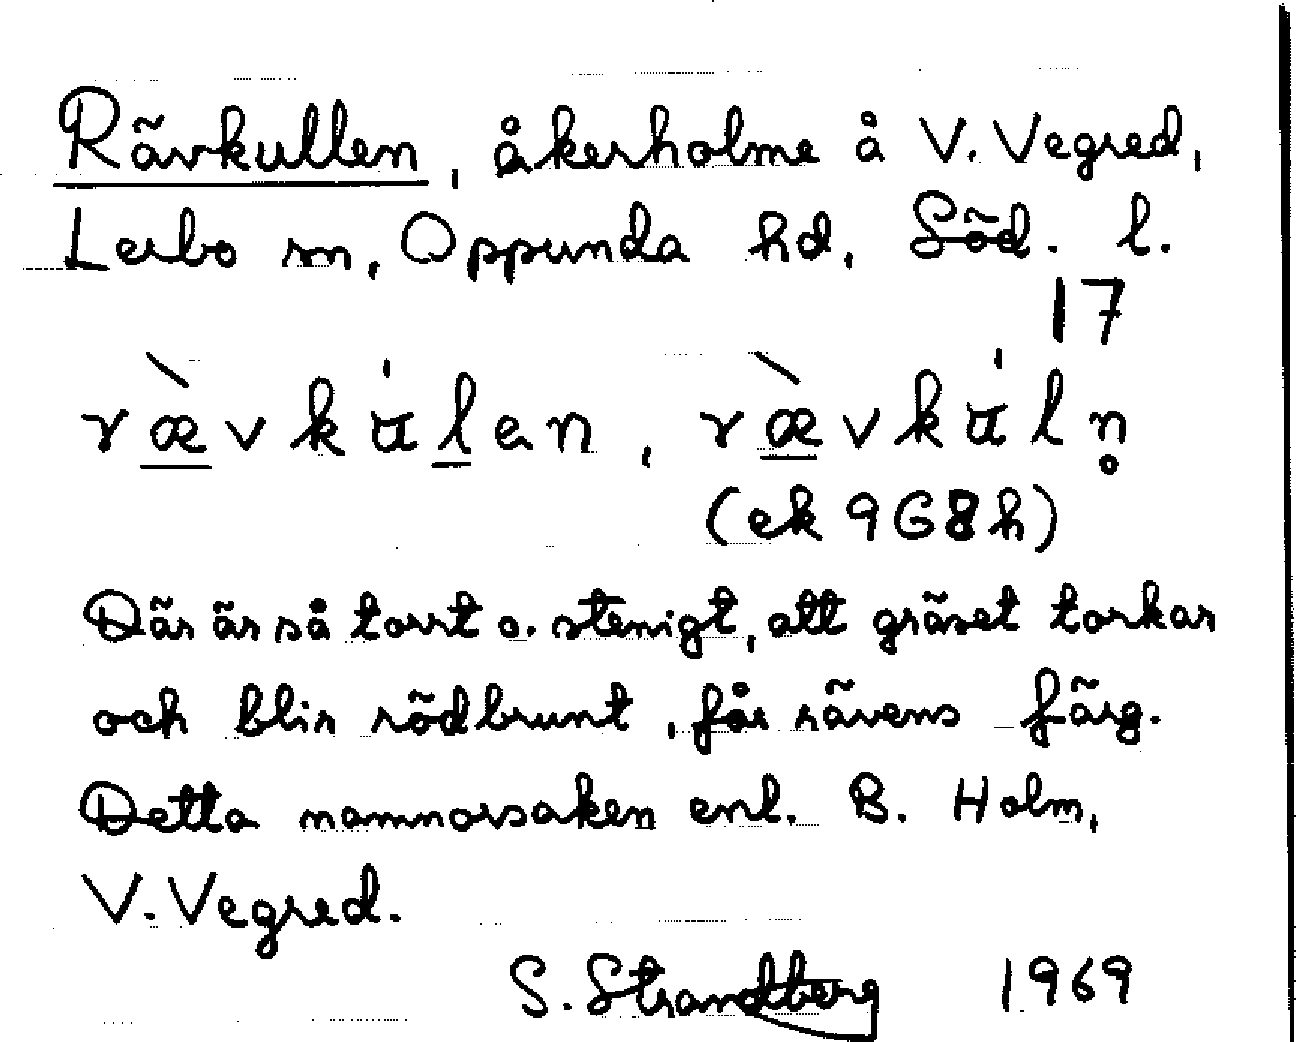 Rävkullen, åkerholme å V. Vegred,
Lerbo sn, Oppunda hd, Söd. l.
17
ræ̀vkʉ́len, ræ̀vkʉ́ln̥
(ek 9G8h)
Där är så torrt o. stenigt, att gräset torkar
och blir rödbrunt, får rävens färg.
Detta namnorsaken enl. B. Holm,
V. Vegred.
S. Strandberg 1969